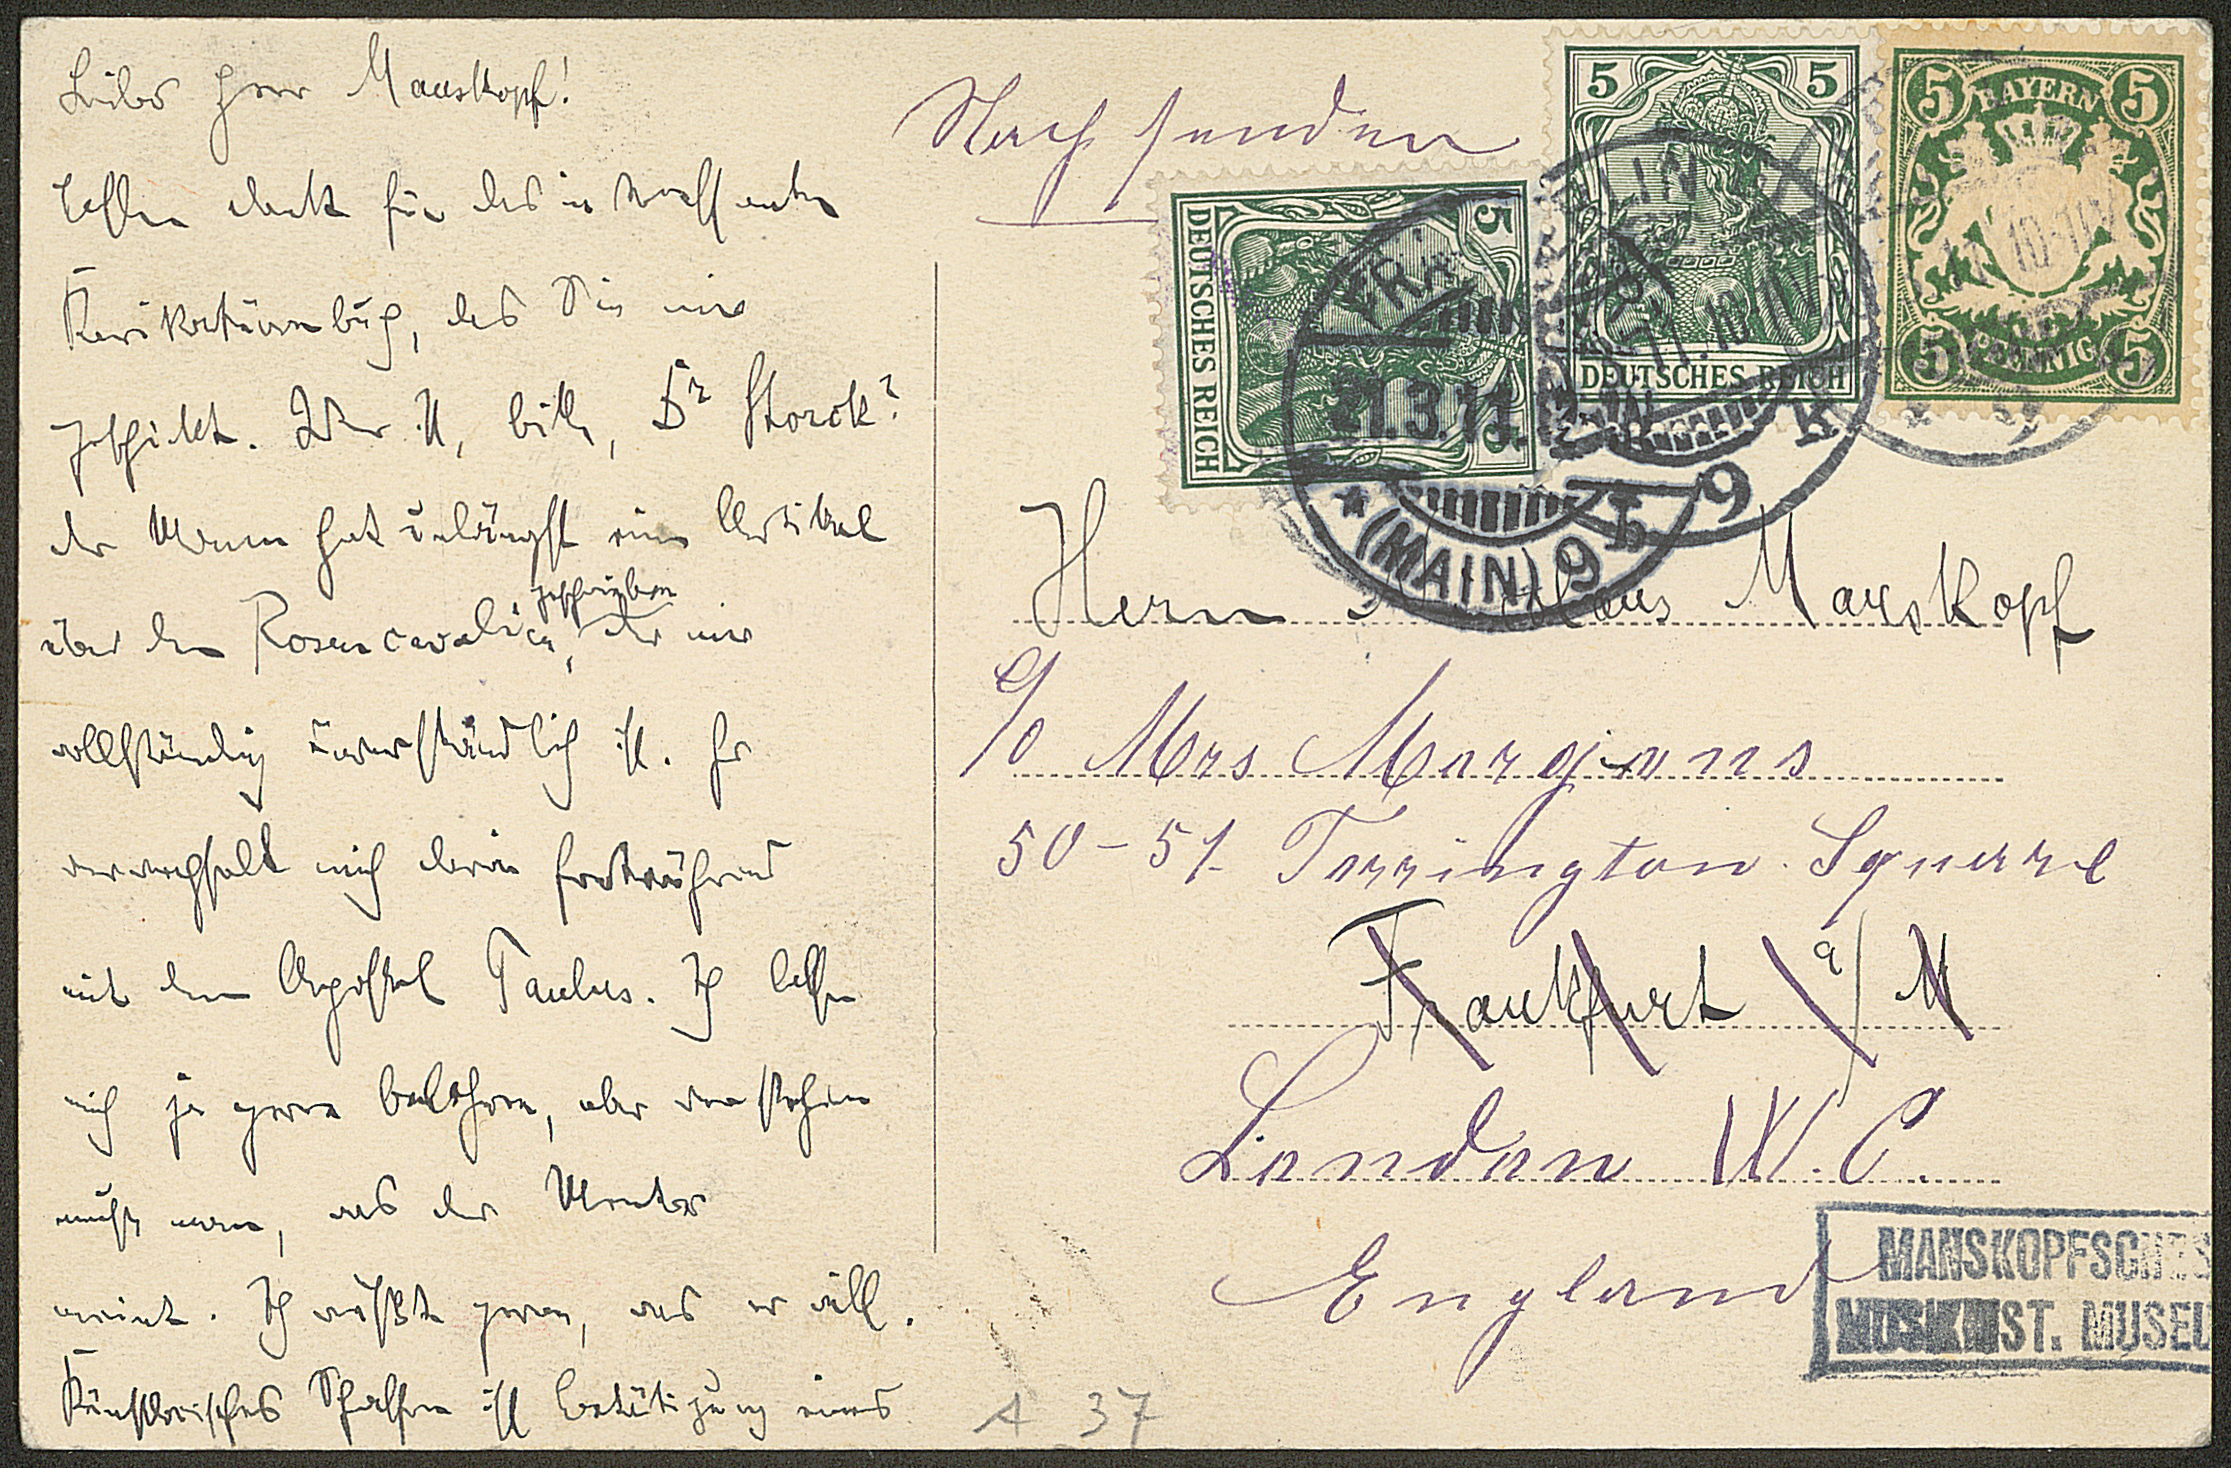 Lieber Herr Manskopf!
besten Dank für das interessante
Karikaturenbuch, das Sie mir
geschickt. Wer ist, bitte, Dr Storck?
der Mann hat unlängst einen Artikel
über den Rosencavalier
geschrieben
, der mir
vollständig unverständlich ist. Er
verwechselt mich darin fortwährend
mit dem Apostel Paulus. Ich lasse
mich ja gerne belehren, aber verstehen
müßte man, was der Mentor
meint. Ich wüßte gerne, was er will.
Künstlerisches Schaffen ist Betätigung eines
A 37
Nachsenden
5 5
DEUTSCHES REICH
5 5
DEUTSCHES REICH
5 BAYERN 5
5 PFENNIG 5
(MAIN) 9
Herrn Manskopf
c/o Mrs Morgans
50-51 Torrington Square
Frankfurt a/M
London W.C.
England
MANSKOPFSCHES
MUSIKHIST. MUSEU